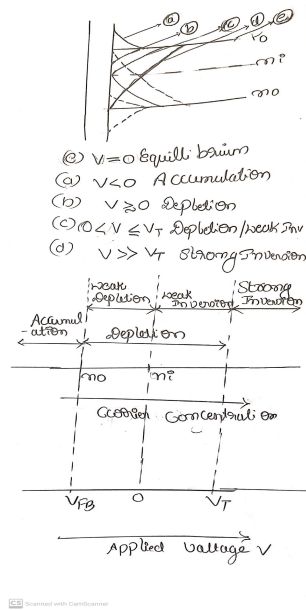 (a)
(b) (c) (d) (e)
ni
no
(e) V=0 Equilli brium
(a) V<0 Accumulation
(b) V≥0 Depletion
(c) 0<V≤VT Depletion/weak Inv
(d) V>>VT Strong Inversion
weak Depletion weak Inversion Strong Inversion
Accumul-ation Depletion
no ni
Carrier Concentration
VFB 0 VT
Applied Voltage V
CS Scanned with CamScanner